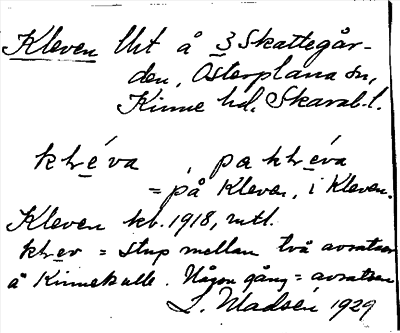 Kleven lht å 3 Skattegår-
den, Österplana sn,
Kinne hd. Skarab. l.
klréva, pa klréva
= på Kleven, i Kleven.
Kleven kb. 1918, mtl.
klrev = stup mellan två avsatser
å Kinnekulle. Någon gång = avsatsen
L. Madsén 1929